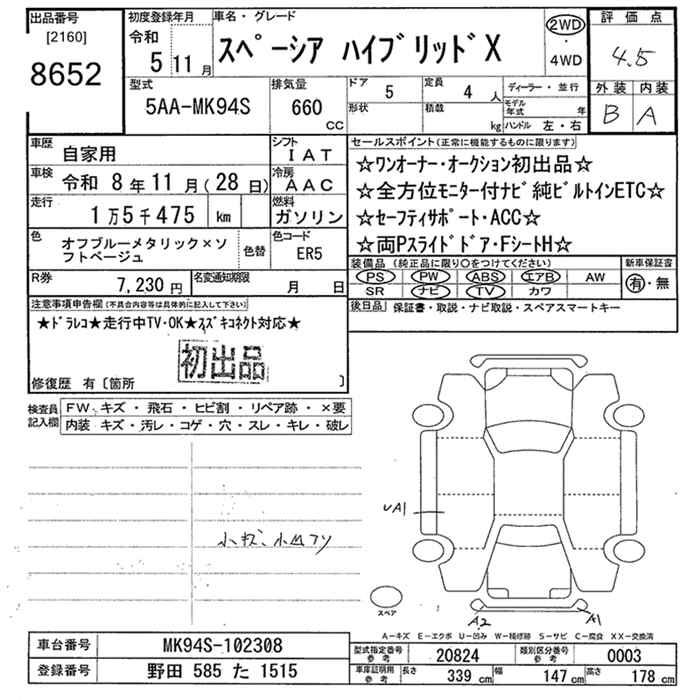 出品番号
[2160]
8652
初度登録年月
令和
5 11月
車名・グレード
スペーシア ハイブリッドX
2WD
・
4WD
評価点
4.5
外装 内装
B A
型式
5AA-MK94S
排気量
660
CC
ドア
5
定員
4 人
形状
積載
kg
ディーラー・並行
モデル年式 年
ハンドル 左・右
車歴
自家用
シフト
IAT
車検
令和 8年11月(28日)
冷房
AAC
走行
1万5千475 km
燃料
ガソリン
色
オフブルーメタリック×ソフトベージュ
色替
色コード
ER5
R券
7,230円
名変通知期限
月 日
セールスポイント(正常に機能するものに限ります)
☆ワンオーナー・オークション初出品☆
☆全方位モニター付ナビ純ビルトインETC☆
☆セーフティサポート・ACC☆
☆両Pスライドドア・FシートH☆
装備品(純正品に限り○をつけてください)
PS PW ABS エアB AW
SR ナビ TV カワ
新車保証書
有・無
後日品 保証書・取説・ナビ取説・スペアスマートキー
注意事項申告欄(不具合内容等は具体的に記入して下さい)
★ドラレコ★走行中TV・OK★スズキコネクト対応★
初出品
修復歴 有〔箇所 〕
検査員記入欄
FW キズ・飛石・ヒビ割・リペア跡・×要
内装 キズ・汚レ・コゲ・穴・スレ・キレ・破レ
小キズ、小凹アリ
UA1
スペア
A2
A1
A-キズ E-エクボ U-凹み W-補修跡 S-サビ C-腐食 XX-交換済
車台番号
MK94S-102308
登録番号
野田 585 た 1515
型式指定番号
参考
20824
類別区分番号
参考
0003
車庫証明用
参考
長さ 339cm
幅 147cm
高さ 178cm